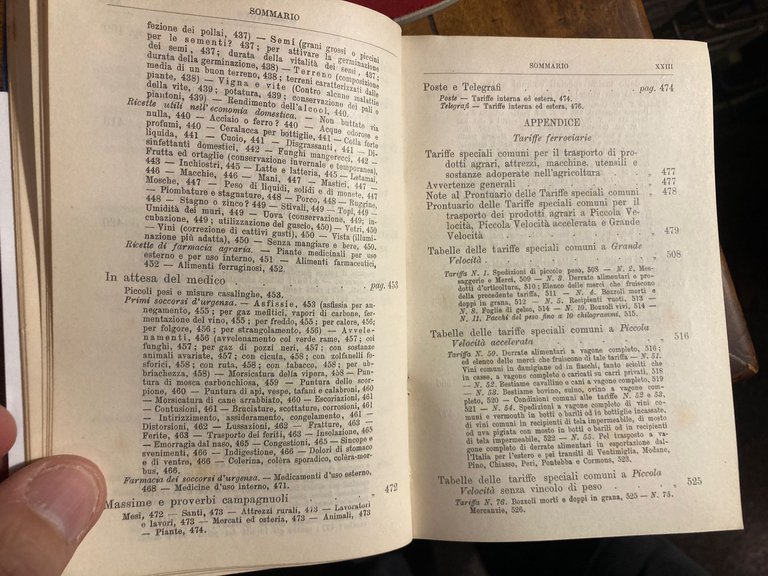 SOMMARIO
fezione dei pollai, 437) — Semi (grani grossi o piccini
per le sementi? 437; per attivare la germinazione
dei semi, 437; durata della vitalità dei semi, 437;
durata della germinazione, 438) — Terreno (composizione
media di un buon terreno, 438; terreni caratterizzati dalle
piante, 438) — Vigna e vite (Contro alcune malattie
della vite, 439; potatura, 439; conservazione dei pali o
piantoni, 439) — Rendimento dell'alcool, 440.
Ricette utili nell'economia domestica. — Non buttate via
nulla, 440 — Acciaio o ferro? 440 — Acque odorose e
profumi, 440 — Ceralacca per bottiglie, 441 — Colla forte
liquida, 441 — Cuoio, 441 — Disgrassanti, 441 — Di-
sinfettanti domestici, 442 — Funghi mangerecci, 442 —
Frutta ed ortaglie (conservazione invernale e temporanea),
443 — Inchiostri, 445 — Latte e latteria, 445 — Letamai,
446 — Macchie, 446 — Mani, 447 — Mastici, 447 —
Mosche, 447 — Peso di liquidi, solidi e di monete, 447
— Piombature e stagnature, 448 — Porco, 448 — Ruggine,
448 — Stagno o zinco? 448 — Stivali, 449 — Topi, 449 —
Umidità dei muri, 449 — Uova (conservazione, 449; in-
cubazione, 449; utilizzazione del guscio, 450) — Vetri, 450
— Vini (correzione di cattivi gusti), 450 — Vista (illumi-
nazione più adatta), 450 — Senza mangiare e bere, 450.
Ricette di farmacia agraria. — Piante medicinali per uso
esterno e per uso interno, 451 — Alimenti farmaceutici,
452 — Alimenti ferruginosi, 452.
In attesa del medico pag. 453
Piccoli pesi e misure casalinghe, 453.
Primi soccorsi d'urgenza. — Asfissie, 453 (asfissia per an-
negamento, 455; per gaz mefitici, vapori di carbone, fer-
mentazione del vino, 455; per freddo, 455; per calore, 456;
per folgore, 456; per strangolamento, 456) — Avvele-
namenti, 456 (avvelenamento col verde rame, 457; coi
funghi, 457; per gaz di pozzi neri, 457; con sostanze
animali avariate, 458; con cicuta, 458; con zolfanelli fo-
sforici, 458; con ruta, 458; con tabacco, 458; per ub-
briachezza, 458) — Morsicatura della vipera, 458 — Pun-
tura di mosca carbonchiosa, 459 — Puntura dello scor-
pione, 460 — Puntura di api, vespe, tafani e calabroni, 460
— Morsicatura di cane arrabbiato, 460 — Escoriazioni, 461
— Contusioni, 461 — Bruciature, scottature, corrosioni, 461
— Intirizzimento, assideramento, congelamento, 461 —
Distorsioni, 462 — Lussazioni, 462 — Fratture, 463 —
Ferite, 463 — Trasporto dei feriti, 463 — Insolazione, 465
— Emorragia dal naso, 465 — Congestioni, 465 — Sincope e
svenimenti, 466 — Indigestione, 466 — Dolori di stomaco
e di ventre, 466 — Colerina, colèra sporadico, colèra-mor-
bus, 466.
Farmacia dei soccorsi d'urgenza. — Medicamenti d'uso esterno,
468 — Medicine d'uso interno, 471.
Massime e proverbi campagnuoli „ 472
Mesi, 472 — Santi, 473 — Attrezzi rurali, 473 — Lavoratori
e lavori, 473 — Mercati ed osteria, 473 — Animali, 473
— Piante, 474.
SOMMARIO XXIII
Poste e Telegrafi pag. 474
Poste — Tariffe interna ed estera, 474.
Telegrafi — Tariffe interna ed estera, 476.
APPENDICE
Tariffe ferroviarie
Tariffe speciali comuni per il trasporto di pro-
dotti agrari, attrezzi, macchine, utensili e
sostanze adoperate nell'agricoltura „ 477
Avvertenze generali „ 477
Note al Prontuario delle Tariffe speciali comuni „ 478
Prontuario delle Tariffe speciali comuni per il
trasporto dei prodotti agrari a Piccola Ve-
locità, Piccola Velocità accelerata e Grande
Velocità „ 479
Tabelle delle tariffe speciali comuni a Grande
Velocità „ 508
Tariffa N. 1. Spedizioni di piccolo peso, 508 — N. 2. Mes-
saggerie e Merci, 509 — N. 3. Derrate alimentari e prodotti
d'orticoltura, 510; Elenco delle merci che fruiscono
della precedente tariffa, 511 — N. 4. Bozzoli morti e
doppi in grana, 512 — N. 5. Recipienti vuoti, 513 —
N. 8. Foglia di gelso, 514 — N. 10. Bozzoli vivi, 514
— N. 11. Pacchi del peso fino a 10 chilogrammi, 515.
Tabelle delle tariffe speciali comuni a Piccola
Velocità accelerata „ 516
Tariffa N. 50. Derrate alimentari a vagone completo, 516;
ed elenco delle merci che fruiscono di tale tariffa — N. 51.
Vini comuni in damigiane od in fiaschi, tanto sciolti che
in casse, a vagone completo o caricati su carri privati, 518
— N. 52. Bestiame cavallino e cani a vagone completo, 519
— N. 53. Bestiame bovino, suino, ovino ecc. a vagone com-
pleto, 520 — Condizioni comuni alle tariffe N. 52 e 53,
521 — N. 54. Spedizioni a vagone completo di vini co-
muni e vermouth in botti o barili ed in bottiglie incassate,
di vini comuni in recipienti di tela impermeabile, di mosto
od uva pigiata con mosto in botti o barili od in recipienti
di tela impermeabile, 522 — N. 55. Pel trasporto a vagone
completo di derrate alimentari in esportazione dal-
l'Italia per l'estero e pei transiti di Ventimiglia, Modane,
Pino, Chiasso, Peri, Pontebba e Cormons, 523.
Tabelle delle tariffe speciali comuni a Piccola
Velocità senza vincolo di peso „ 525
Tariffa N. 76. Bozzoli morti e doppi in grana, 525 — N. 75.
Mercanzie, 526.